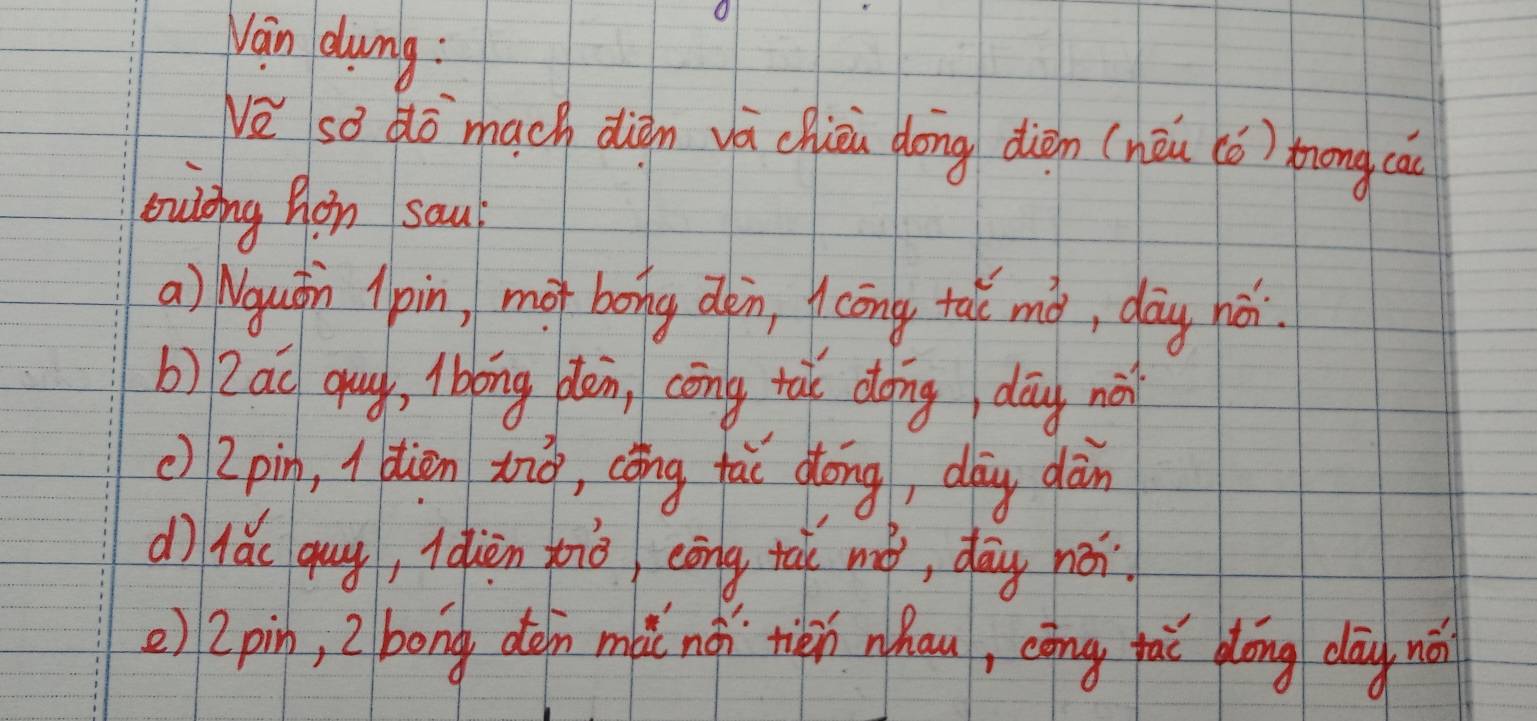 Vận dụng:
Vẽ sơ đồ mạch điện và chiều dòng điện (nếu có) trong các
trường hợp sau:
a) Nguồn 1 pin, một bóng đèn, 1 công tắc mở, dây nối.
b) 2 ác quy, 1 bóng đèn, công tắc đóng, dây nối
c) 2 pin, 1 điện trở, công tắc đóng, dây dẫn
d) 1 ắc quy, 1 điện trở, công tắc mở, dây nối.
e) 2 pin, 2 bóng đèn mắc nối tiếp nhau, công tắc đóng dây nối